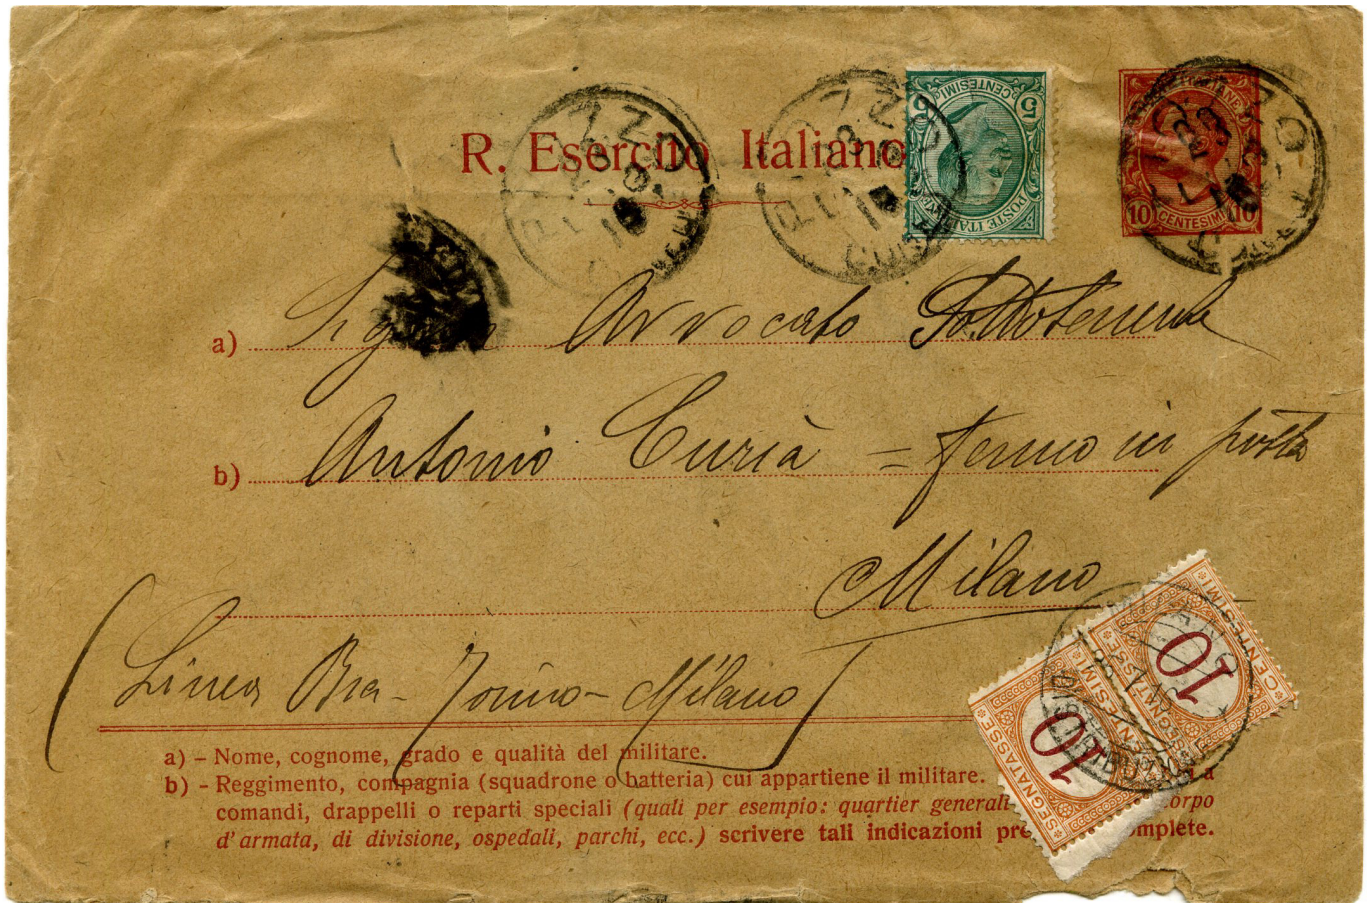 R. Esercito Italiano
5 CENTESIMI 5
POSTE ITALIANE
10 CENTESIMI 10
PIZZO
a) Signor Avvocato Sottotenente
b) Antonio Curià = fermo in posta
Milano
(Linea Bra - Torino - Milano)
SEGNATASSE 10 CENTESIMI
SEGNATASSE 10 CENTESIMI
a) - Nome, cognome, grado e qualità del militare.
b) - Reggimento, compagnia (squadrone o batteria) cui appartiene il militare. a
comandi, drappelli o reparti speciali (quali per esempio: quartier generali corpo
d'armata, di divisione, ospedali, parchi, ecc.) scrivere tali indicazioni pre mplete.